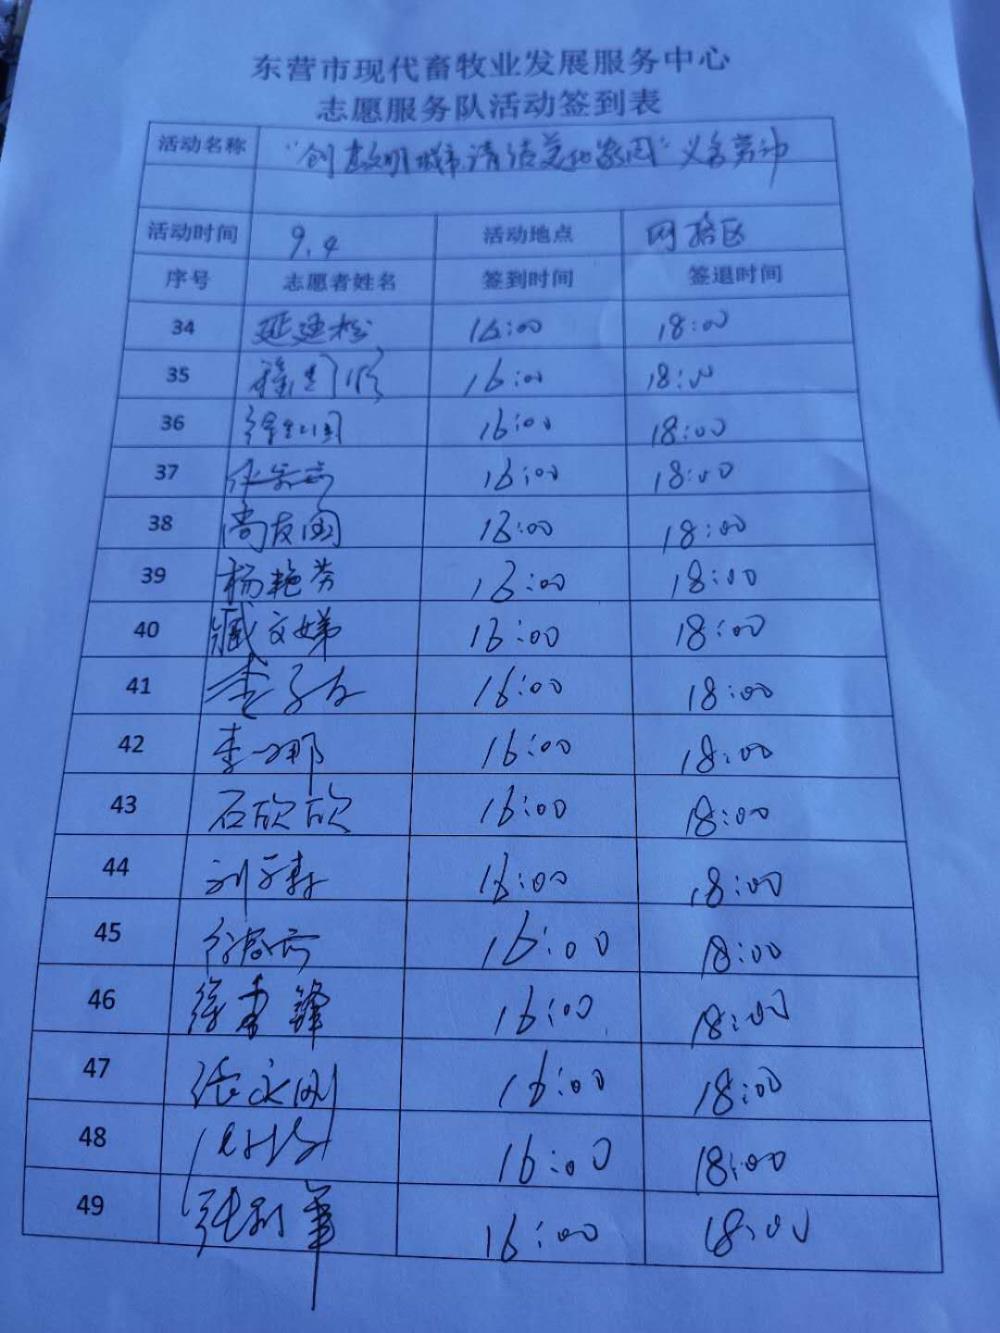 东营市现代畜牧业发展服务中心
志愿服务队活动签到表
活动名称 “创文明城市,清洁美化家园”义务劳动
活动时间 9.4 活动地点 网格区
序号 志愿者姓名 签到时间 签退时间
34 延建松 16:00 18:00
35 16:00 18:00
36 16:00 18:00
37 16:00 18:00
38 尚友国 16:00 18:00
39 杨艳芬 16:00 18:00
40 臧文娣 16:00 18:00
41 李子友 16:00 18:00
42 李娜 16:00 18:00
43 石欣欣 16:00 18:00
44 16:00 18:00
45 16:00 18:00
46 16:00 18:00
47 张永刚 16:00 18:00
48 16:00 18:00
49 16:00 18:00